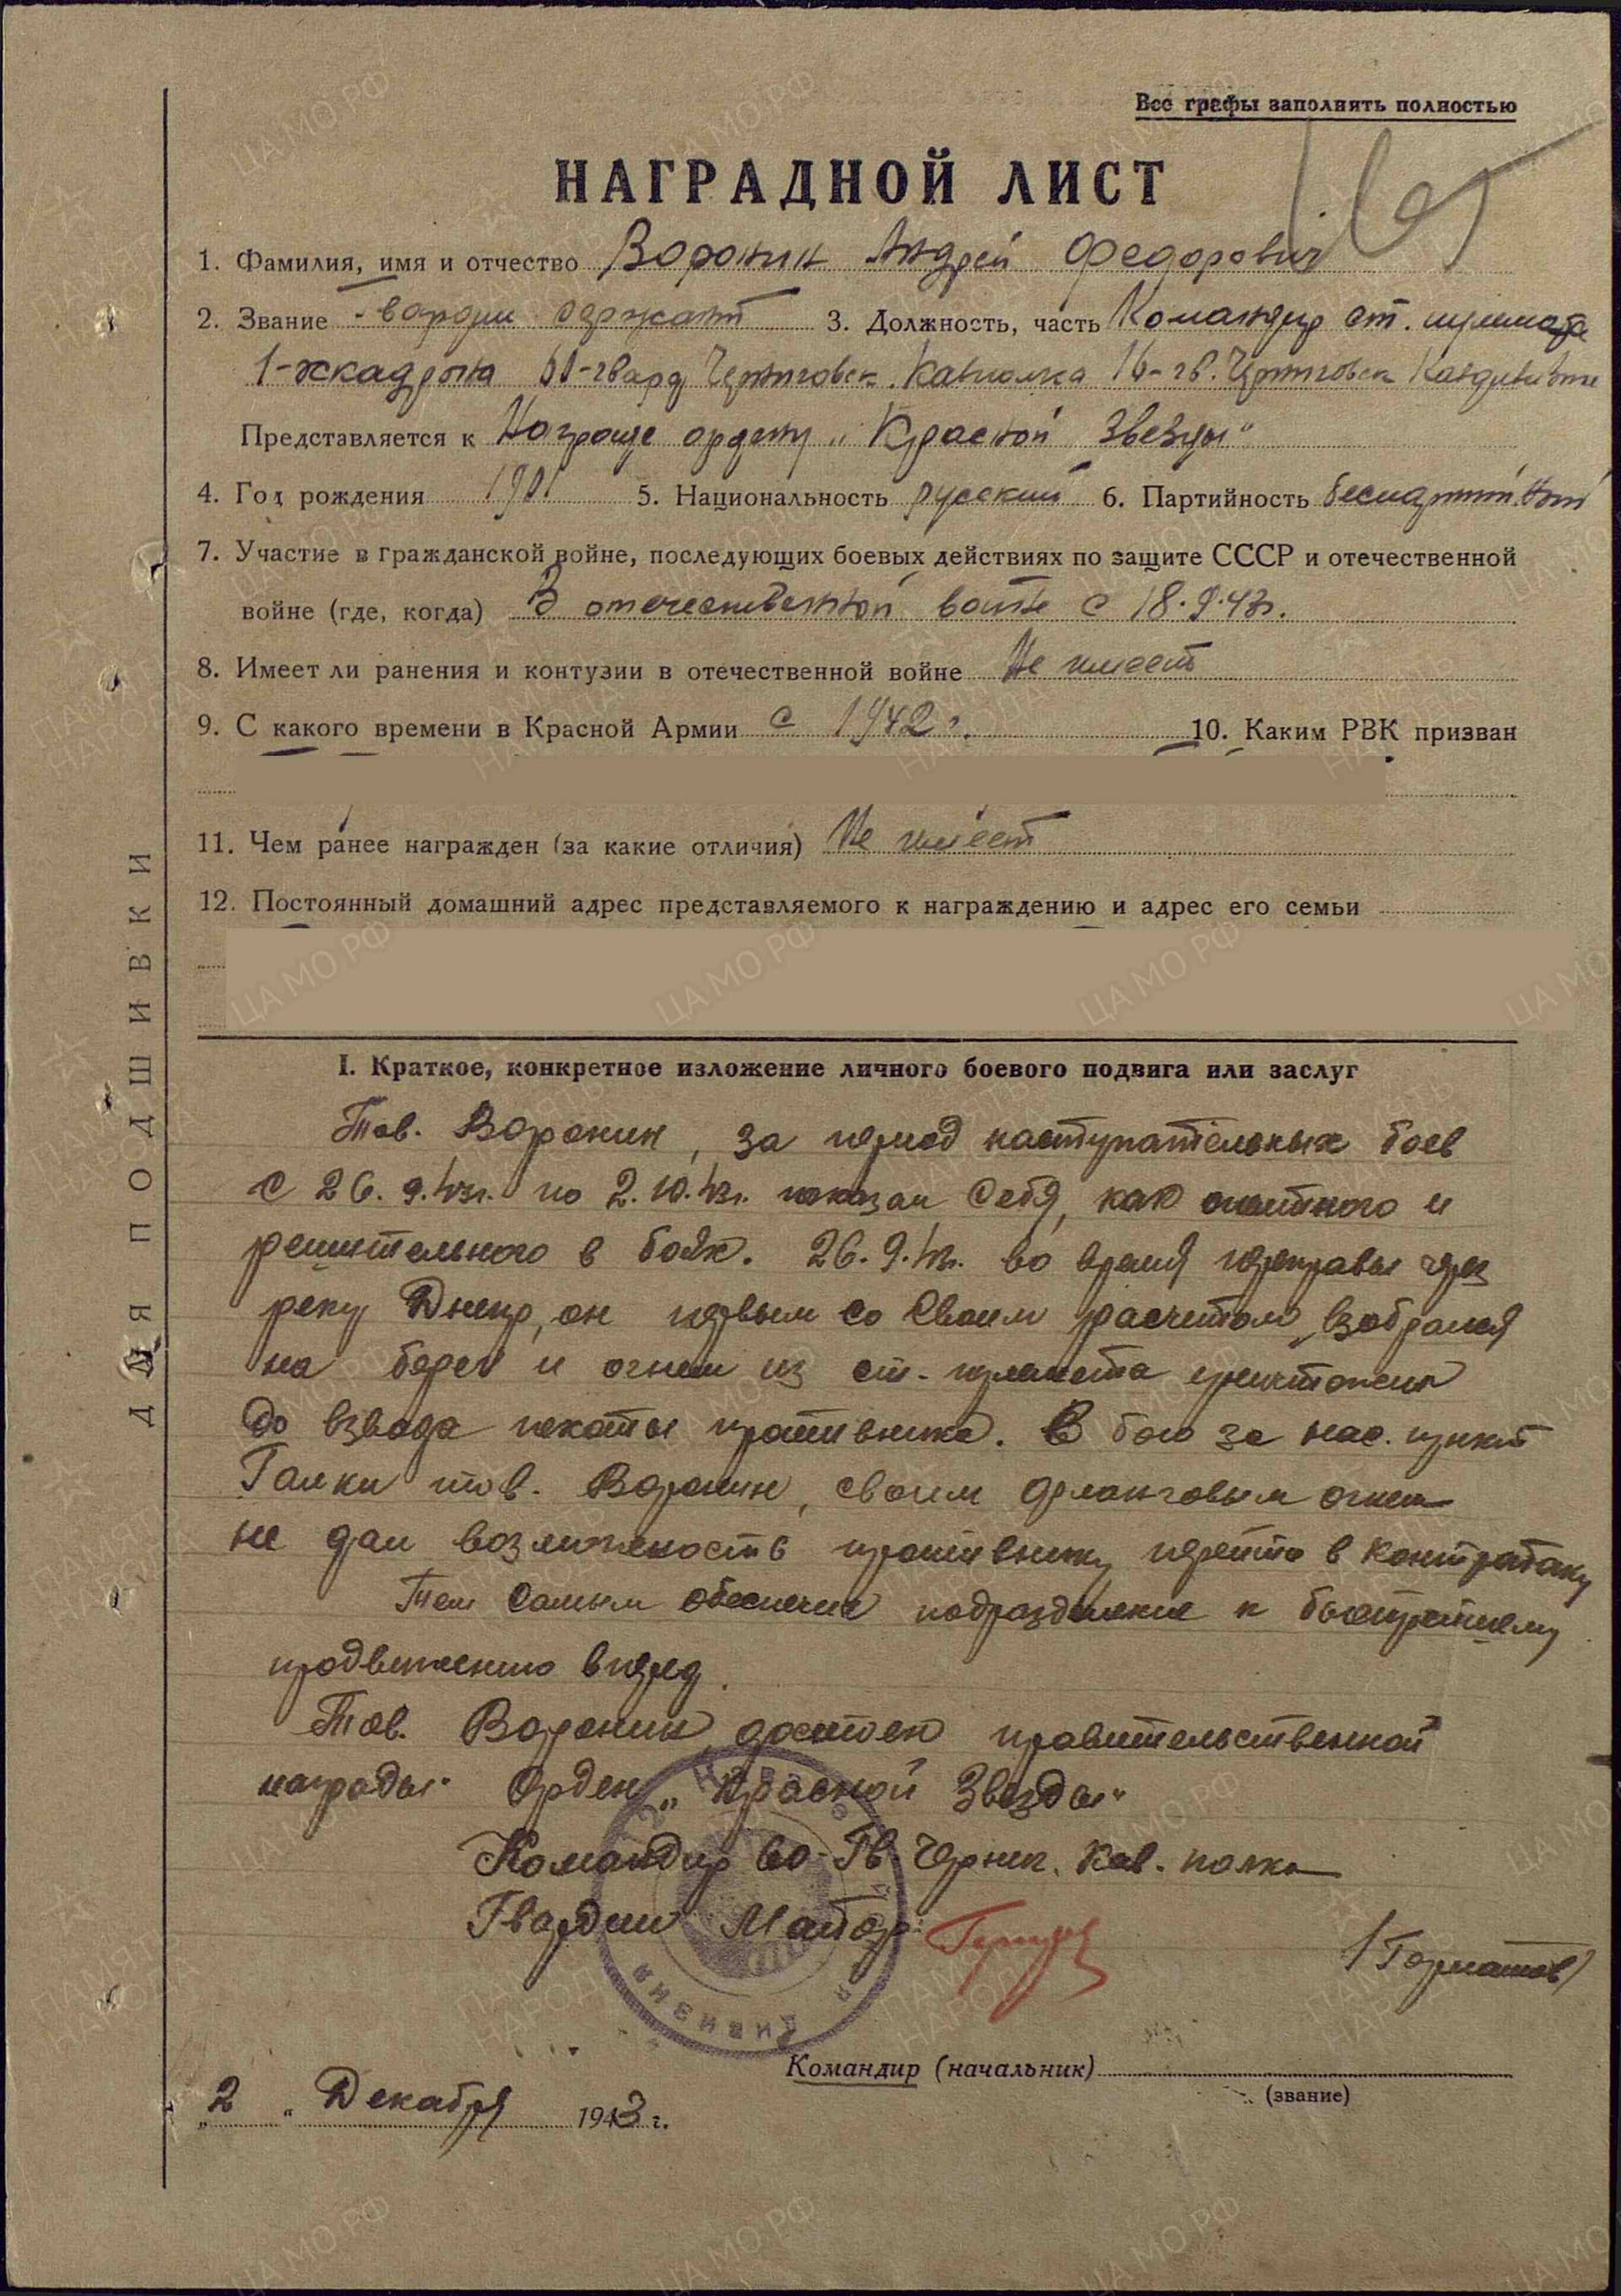 Все графы заполнять полностью
НАГРАДНОЙ ЛИСТ
1. Фамилия, имя и отчество Воронин Андрей Федорович
2. Звание гвардии сержант 3. Должность, часть Командир ст. пулемета
1-эскадрона 60-гвард Черниговск. Кавполка 16-гв. Черниговск Кавдивизии
Представляется к Награде ордену „Красной Звезды"
4. Год рождения 1901 5. Национальность русский 6. Партийность беспартийный
7. Участие в гражданской войне, последующих боевых действиях по защите СССР и отечественной
войне (где, когда) В отечественной войне с 18.9.43г.
8. Имеет ли ранения и контузии в отечественной войне Не имеет
9. С какого времени в Красной Армии с 1942 г. 10. Каким РВК призван
11. Чем ранее награжден (за какие отличия) Не имеет
12. Постоянный домашний адрес представляемого к награждению и адрес его семьи
ДЛЯ ПОДШИВКИ
I. Краткое, конкретное изложение личного боевого подвига или заслуг
Тов. Воронин, за период наступательных боев
с 26.9.43г. по 2.10.43г. показал себя, как опытного и
решительного в боях. 26.9.43г. во время переправы через
реку Днепр, он первым со своим расчетом взобрался
на берег и огнем из ст. пулемета уничтожил
до взвода пехоты противника. В бою за нас. пункт
Галки тов. Воронин, своим фланговым огнем
не дал возможность противнику перейти в контратаку
Тем самым обеспечил подразделение к быстрейшему
продвижению вперед.
Тов. Воронин достоен правительственной
награды Орден „Красной Звезды"
Командир 60-Гв. Черниг. Кав. полка
Гвардии Майор /Горматов/
ДИВИЗИЯ
Командир (начальник)
(звание)
„2" Декабря 1943 г.